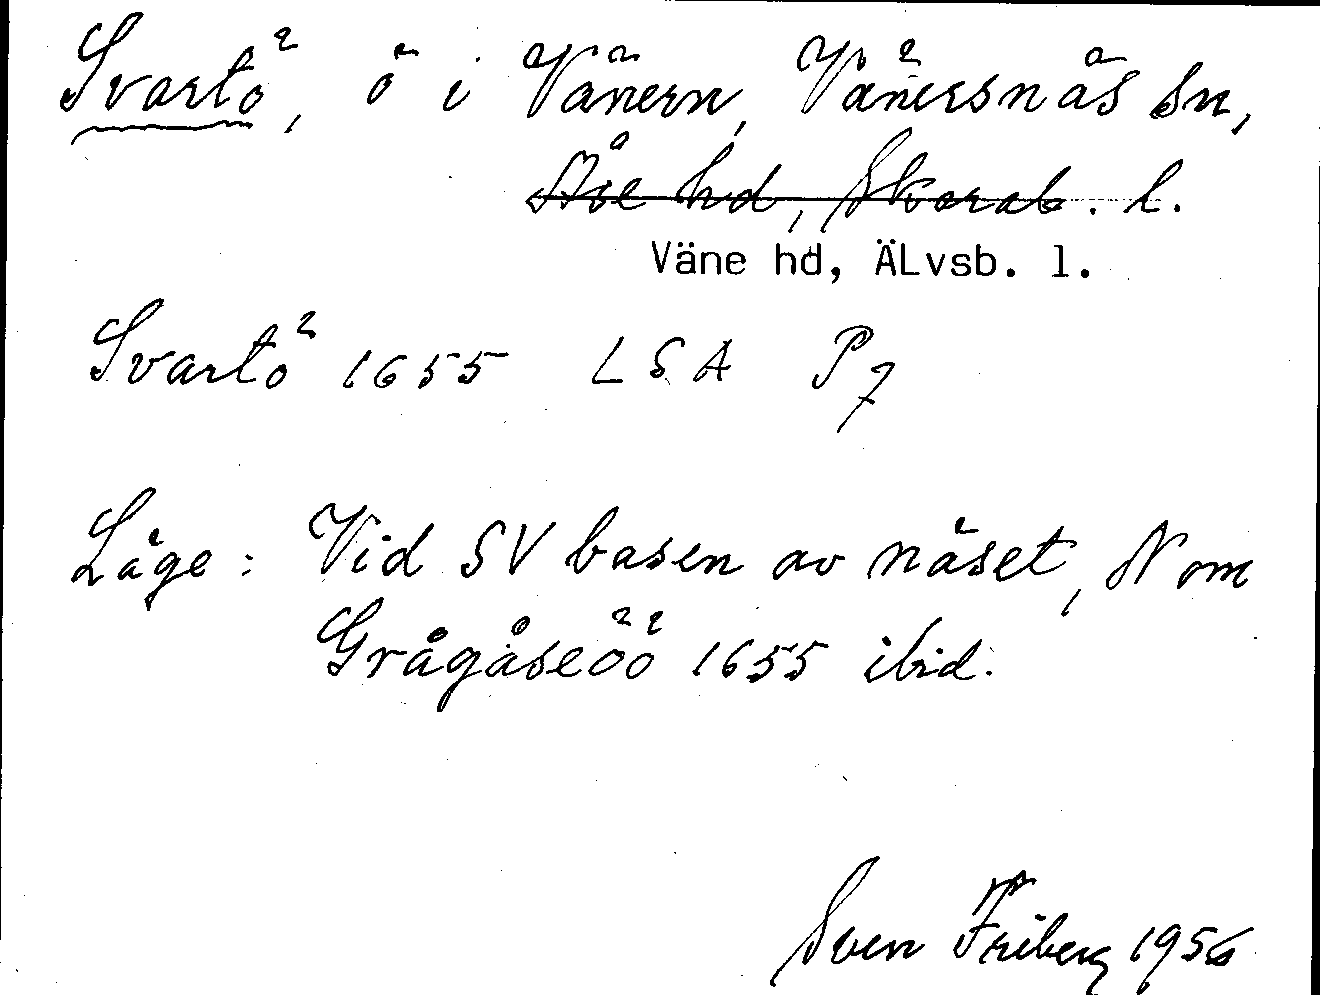 Svartö, ö i Vänern, Vänersnäs sn,
Åse hd, Skarab. l.
Väne hd, ÄLvsb. l.
Svartö 1655 LSA P7
Läge: Vid SV basen av näset, N om
Grågåseöö 1655 ibid.
Sven Friberg 1956